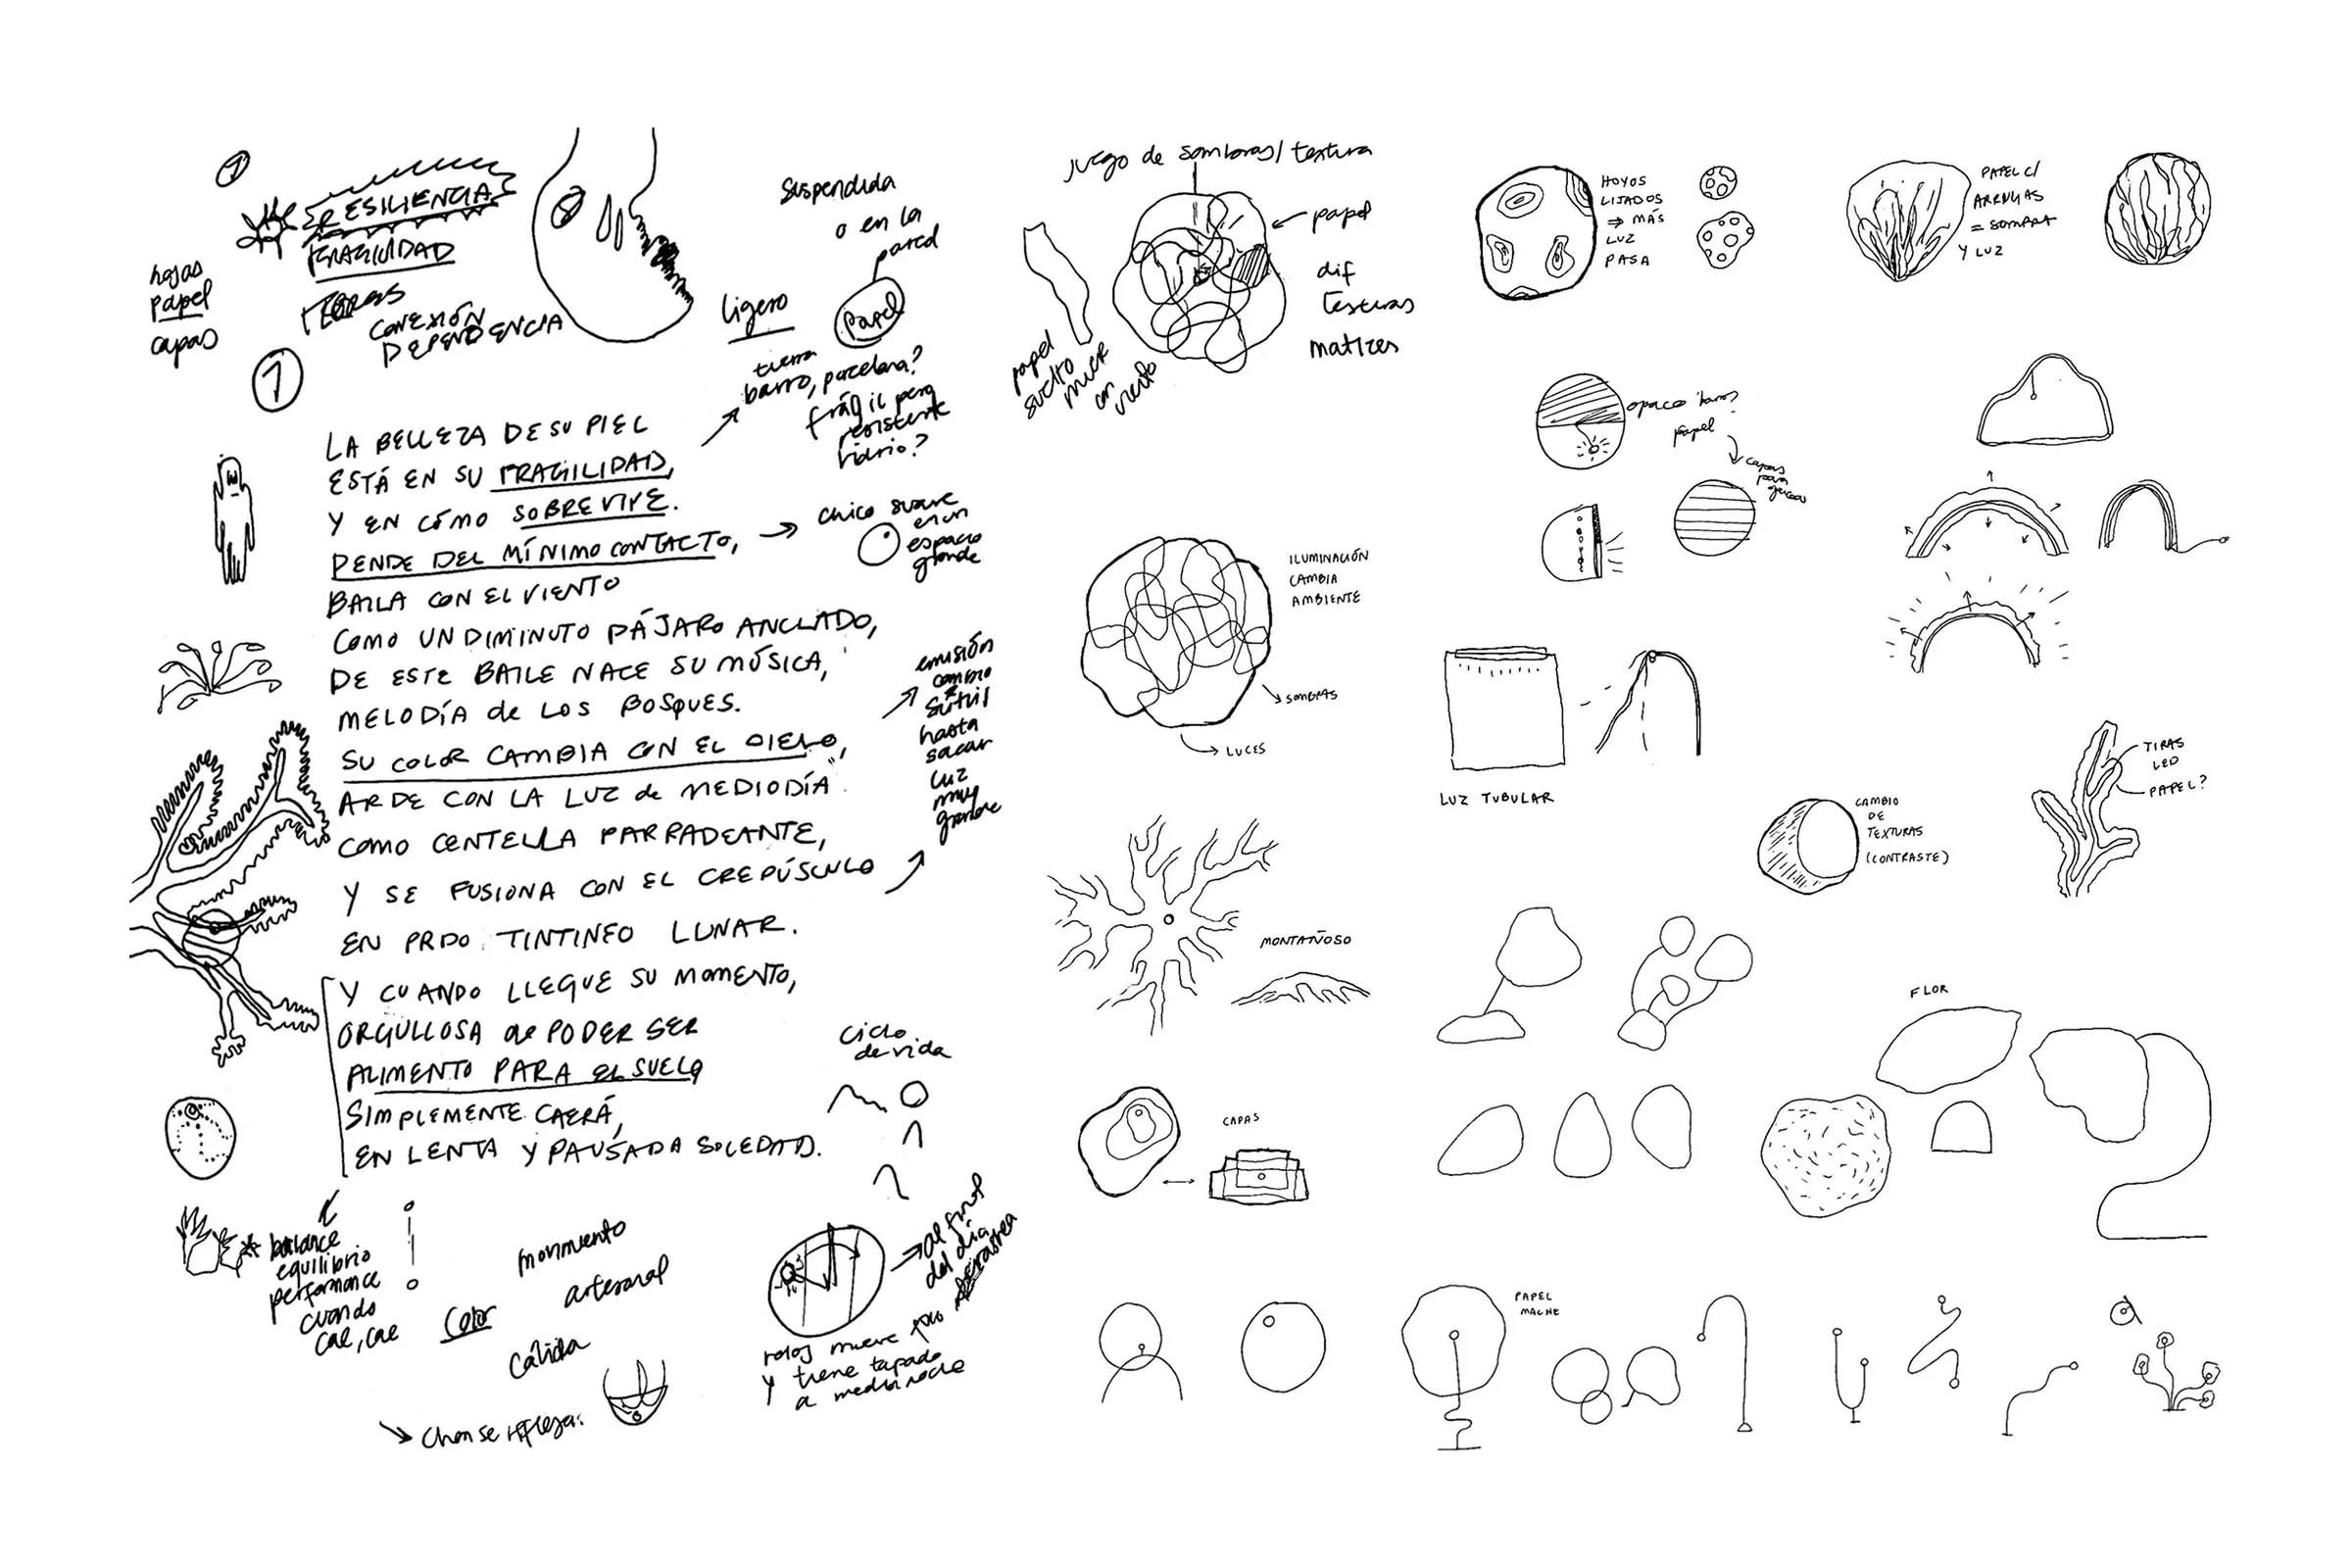 RESILIENCIA
FRAGILIDAD
hojas
papel
capas
CONEXIÓN
DEPENDENCIA
1
LA BELLEZA DE SU PIEL
ESTÁ EN SU FRAGILIDAD,
Y EN CÓMO SOBREVIVE.
PENDE DEL MÍNIMO CONTACTO,
BAILA CON EL VIENTO
COMO UN DIMINUTO PÁJARO ANCLADO,
DE ESTE BAILE NACE SU MÚSICA,
MELODÍA de LOS BOSQUES.
SU COLOR CAMBIA CON EL CIELO,
ARDE CON LA LUZ de MEDIODÍA
COMO CENTELLA PARPADEANTE,
Y SE FUSIONA CON EL CREPÚSCULO
EN TINTINEO LUNAR.
Y CUANDO LLEGUE SU MOMENTO,
ORGULLOSA de PODER SER
ALIMENTO PARA EL SUELO
SIMPLEMENTE CAERÁ,
EN LENTA Y PAUSADA SOLEDAD.
suspendida
o en la
pared
ligero
papel
tierra
barro, porcelana?
frágil pero
resistente
vidrio?
chico suave
en un
espacio
grande
emisión
cambio
sútil
hasta
sacar
luz
muy
grande
ciclo
de vida
* balance
equilibrio
performance
cuando
cae, cae
movimiento
artesanal
Color
cálida
se refleja:
al final
del día
reloj mueve poco
y tiene tapado
a medianoche
juego de sombras/textura
papel
dif
texturas
matices
papel
suelto
con
viento
ILUMINACIÓN
CAMBIA
AMBIENTE
SOMBRAS
LUCES
MONTAÑOSO
CAPAS
HOYOS
LIJADOS
⇒ MÁS
LUZ
PASA
PAPEL C/
ARRUGAS
= SOMBRA
Y LUZ
opaco barro?
papel
capas
para
LUZ TUBULAR
CAMBIO
DE
TEXTURAS
(CONTRASTE)
TIRAS
LED
PAPEL?
FLOR
PAPEL
MACHE